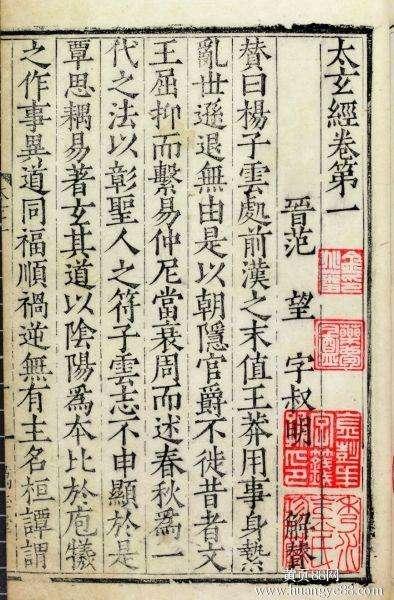 太玄經卷第一
晉范望字叔明解賛
賛曰楊子雲處前漢之末值王莽用事身縶
亂世遜退無由是以朝隱官爵不徙昔者文
王屈抑而繫易仲尼當衰周而述春秋爲一
代之法以彰聖人之符子雲志不申顯於是
覃思耦易著玄其道以陰陽爲本比於庖犧
之作事異道同福順禍逆無有主名桓譚謂
黄页88网
www.huangye88.com